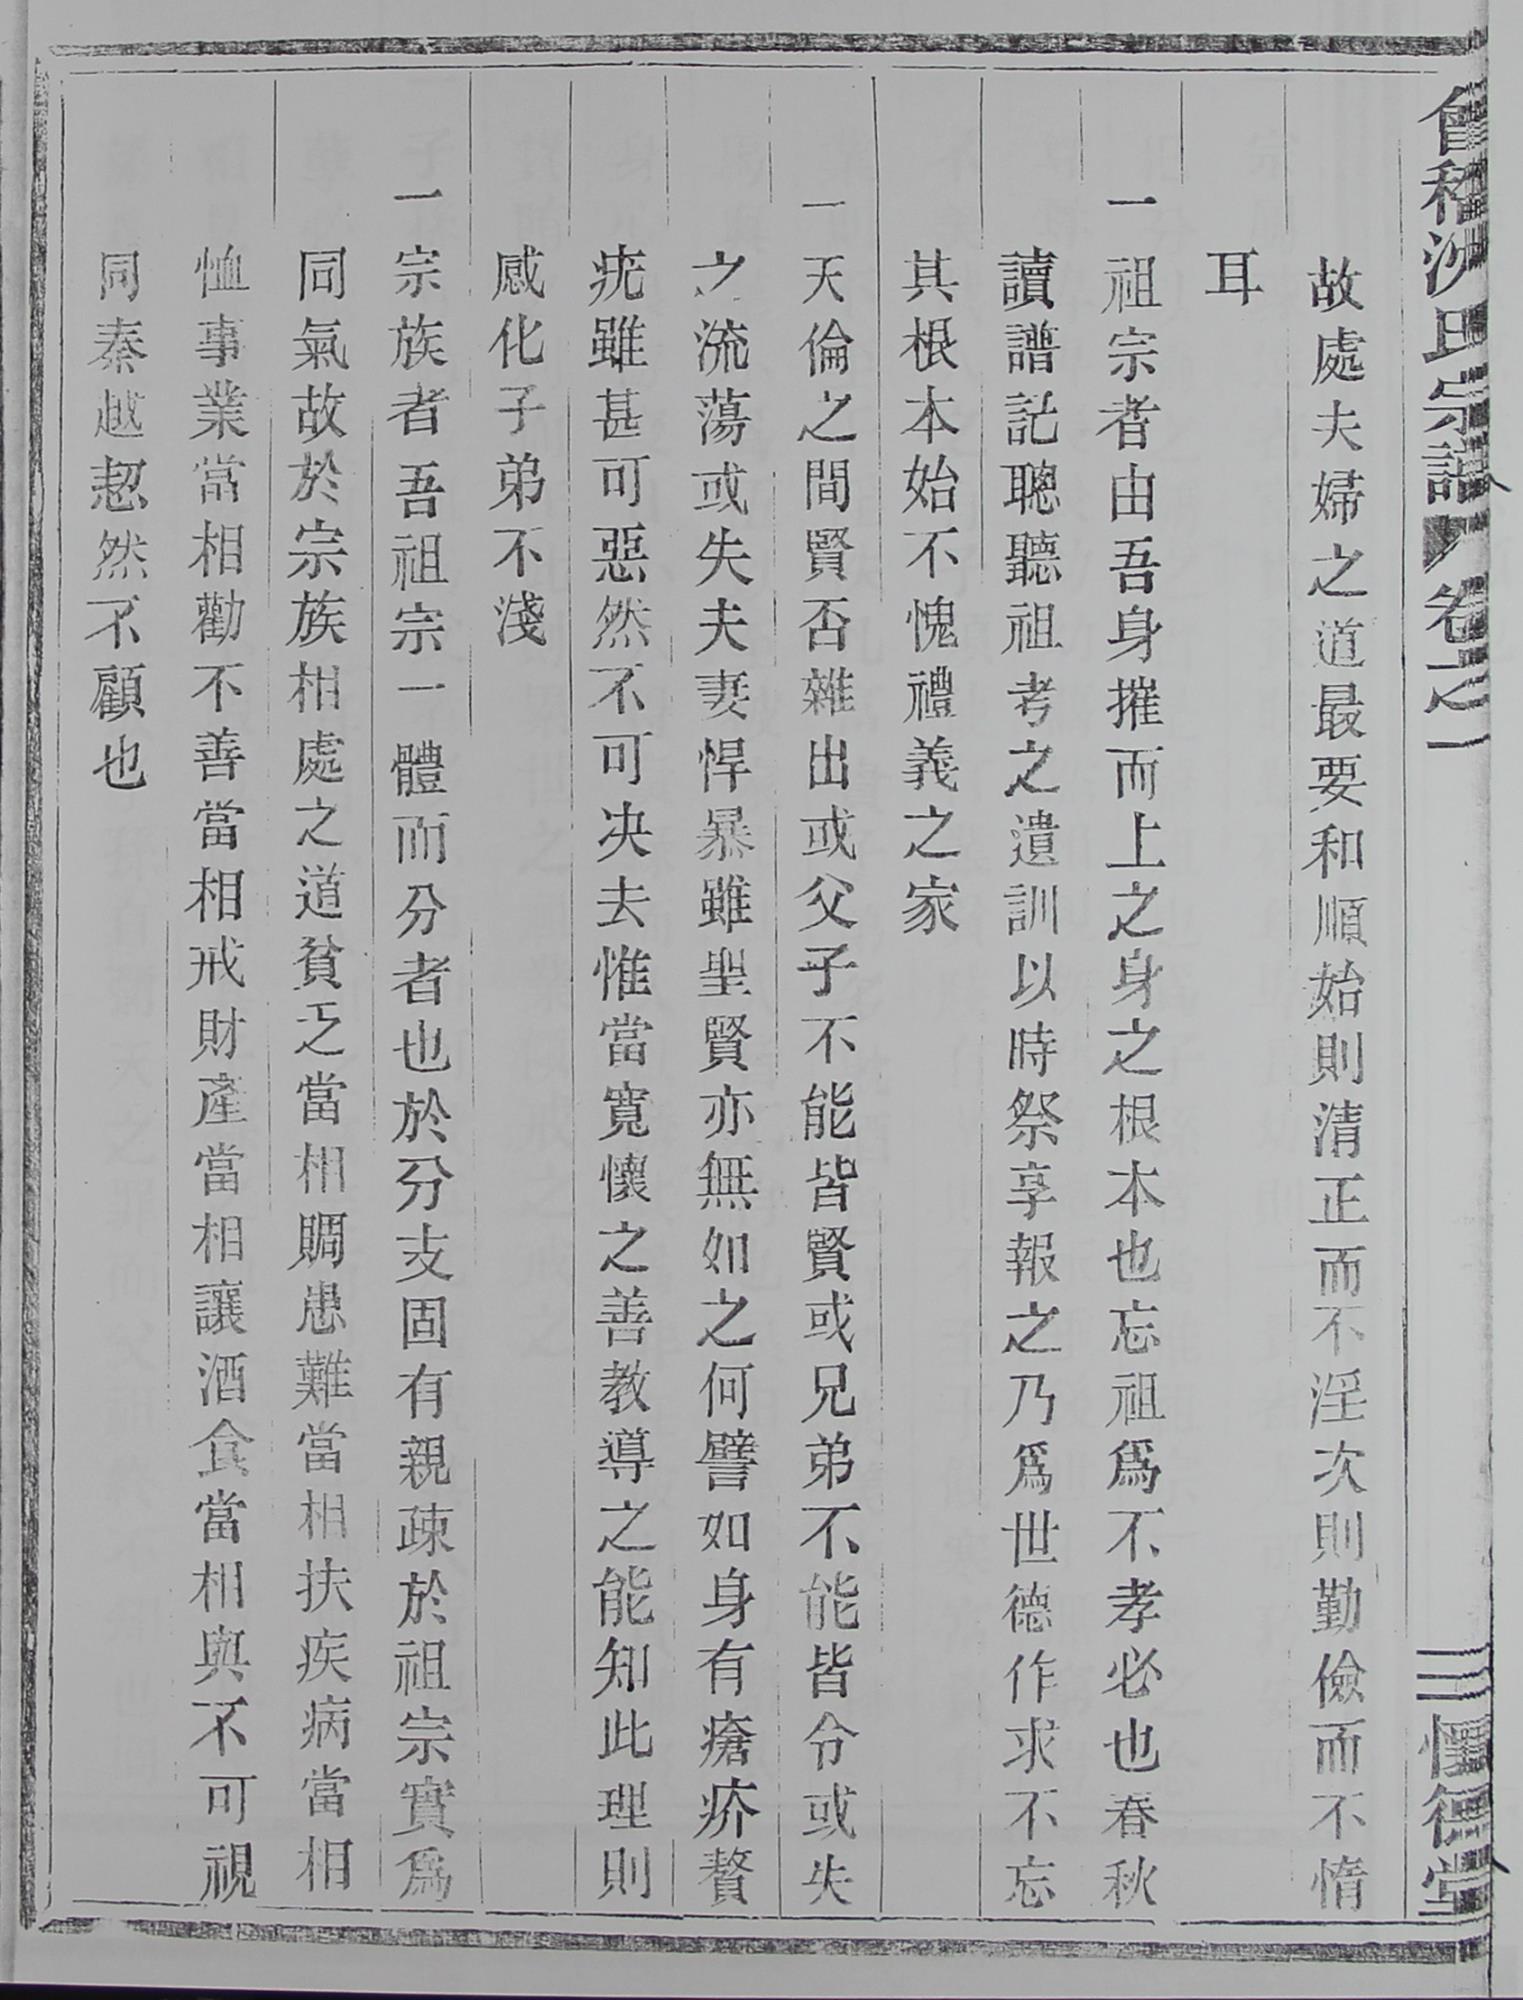 會稽沈氏宗譜 卷之一 懷德堂
故處夫婦之道最要和順始則清正而不淫次則勤儉而不惰
耳
一祖宗者由吾身摧而上之身之根本也忘祖爲不孝必也春秋
讀譜記聰聽祖考之遺訓以時祭享報之乃爲世德作求不忘
其根本始不愧禮義之家
一天倫之間賢否雜出或父子不能皆賢或兄弟不能皆令或失
之流蕩或失夫妻悍暴雖聖賢亦無如之何譬如身有瘡疥贅
疣雖甚可惡然不可决去惟當寬懷之善教導之能知此理則
感化子弟不淺
一宗族者吾祖宗一體而分者也於分支固有親疎於祖宗實爲
同氣故於宗族相處之道貧乏當相賙患難當相扶疾病當相
恤事業當相勸不善當相戒財產當相讓酒食當相與不可視
同秦越恝然不顧也